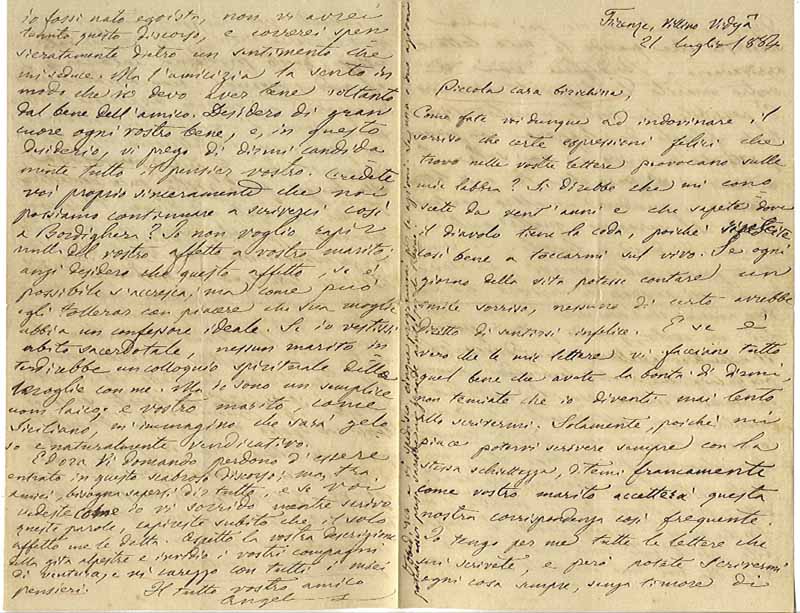 Firenze, Villino Vidyâ
21 luglio 1884
Piccola cara birichina,
Come fate voi dunque ad indovinare il
sorriso che certe espressioni felici che
trovo nelle vostre lettere provocano sulle
mie labbra? Si direbbe che mi cono
scete da vent'anni e che sapete dove
il diavolo tiene la coda, poichè
così bene a toccarmi sul vivo. Se ogni
giorno della vita potesse contare un
simile sorriso, nessuno di certo avrebbe
diritto di sentirsi infelice. E se è
vero che le mie lettere vi facciano tutto
quel bene che avete la bontà di dirmi,
non temiate che io diventi mai lento
allo scrivermi. Solamente, poichè mi
piace potervi scrivere sempre con la
stessa schiettezza, ditemi francamente
come vostro marito accetterà questa
nostra corrispondenza così frequente.
Io tengo per me tutte le lettere che
mi scrivete, e però potete scrivermi
ogni cosa sempre, senza timore di
io fossi nato egoista, non vi avrei
tenuto questo discorso, e coverei spen
sieratamente dietro un sentimento che
mi seduce. Ma l'amicizia la sento in
modo che io devo aver bene soltanto
dal bene dell'amico. Desidero di gran
cuore ogni vostro bene, e, in questo
desiderio, vi prego di dirmi candida
mente tutto il pensier vostro. Credete
voi proprio sinceramente che noi
possiamo continuare a scriverci così
a Bordighera? Io non voglio rapir
nulla del vostro affetto a vostro marito;
anzi desidero che questo affetto, se è
possibile s'accresca; ma come può
egli tollerar con piacere che sua moglie
abbia un confessore ideale. Se io vestissi
abito sacerdotale, nessun marito in
terdirebbe un colloquio spirituale della
moglie con me. Ma io sono un semplice
uom laico; e vostro marito, come
Siciliano, mi immagino che sarà gelo
so e naturalmente vendicativo.
Ed ora vi domando perdono d'essere
entrato in questo scabroso discorso; ma, tra
amici, bisogna sapersi dir tutto, e se voi
vedeste come io vi sorrido mentre scrivo
queste parole, capireste subito che il solo
affetto me le detta. Aspetto la vostra descrizione
della gita alpestre e invidio i vostri compagni
di ventura, e vi carezzo con tutti i miei
pensieri.
Il tutto vostro amico
Angelo